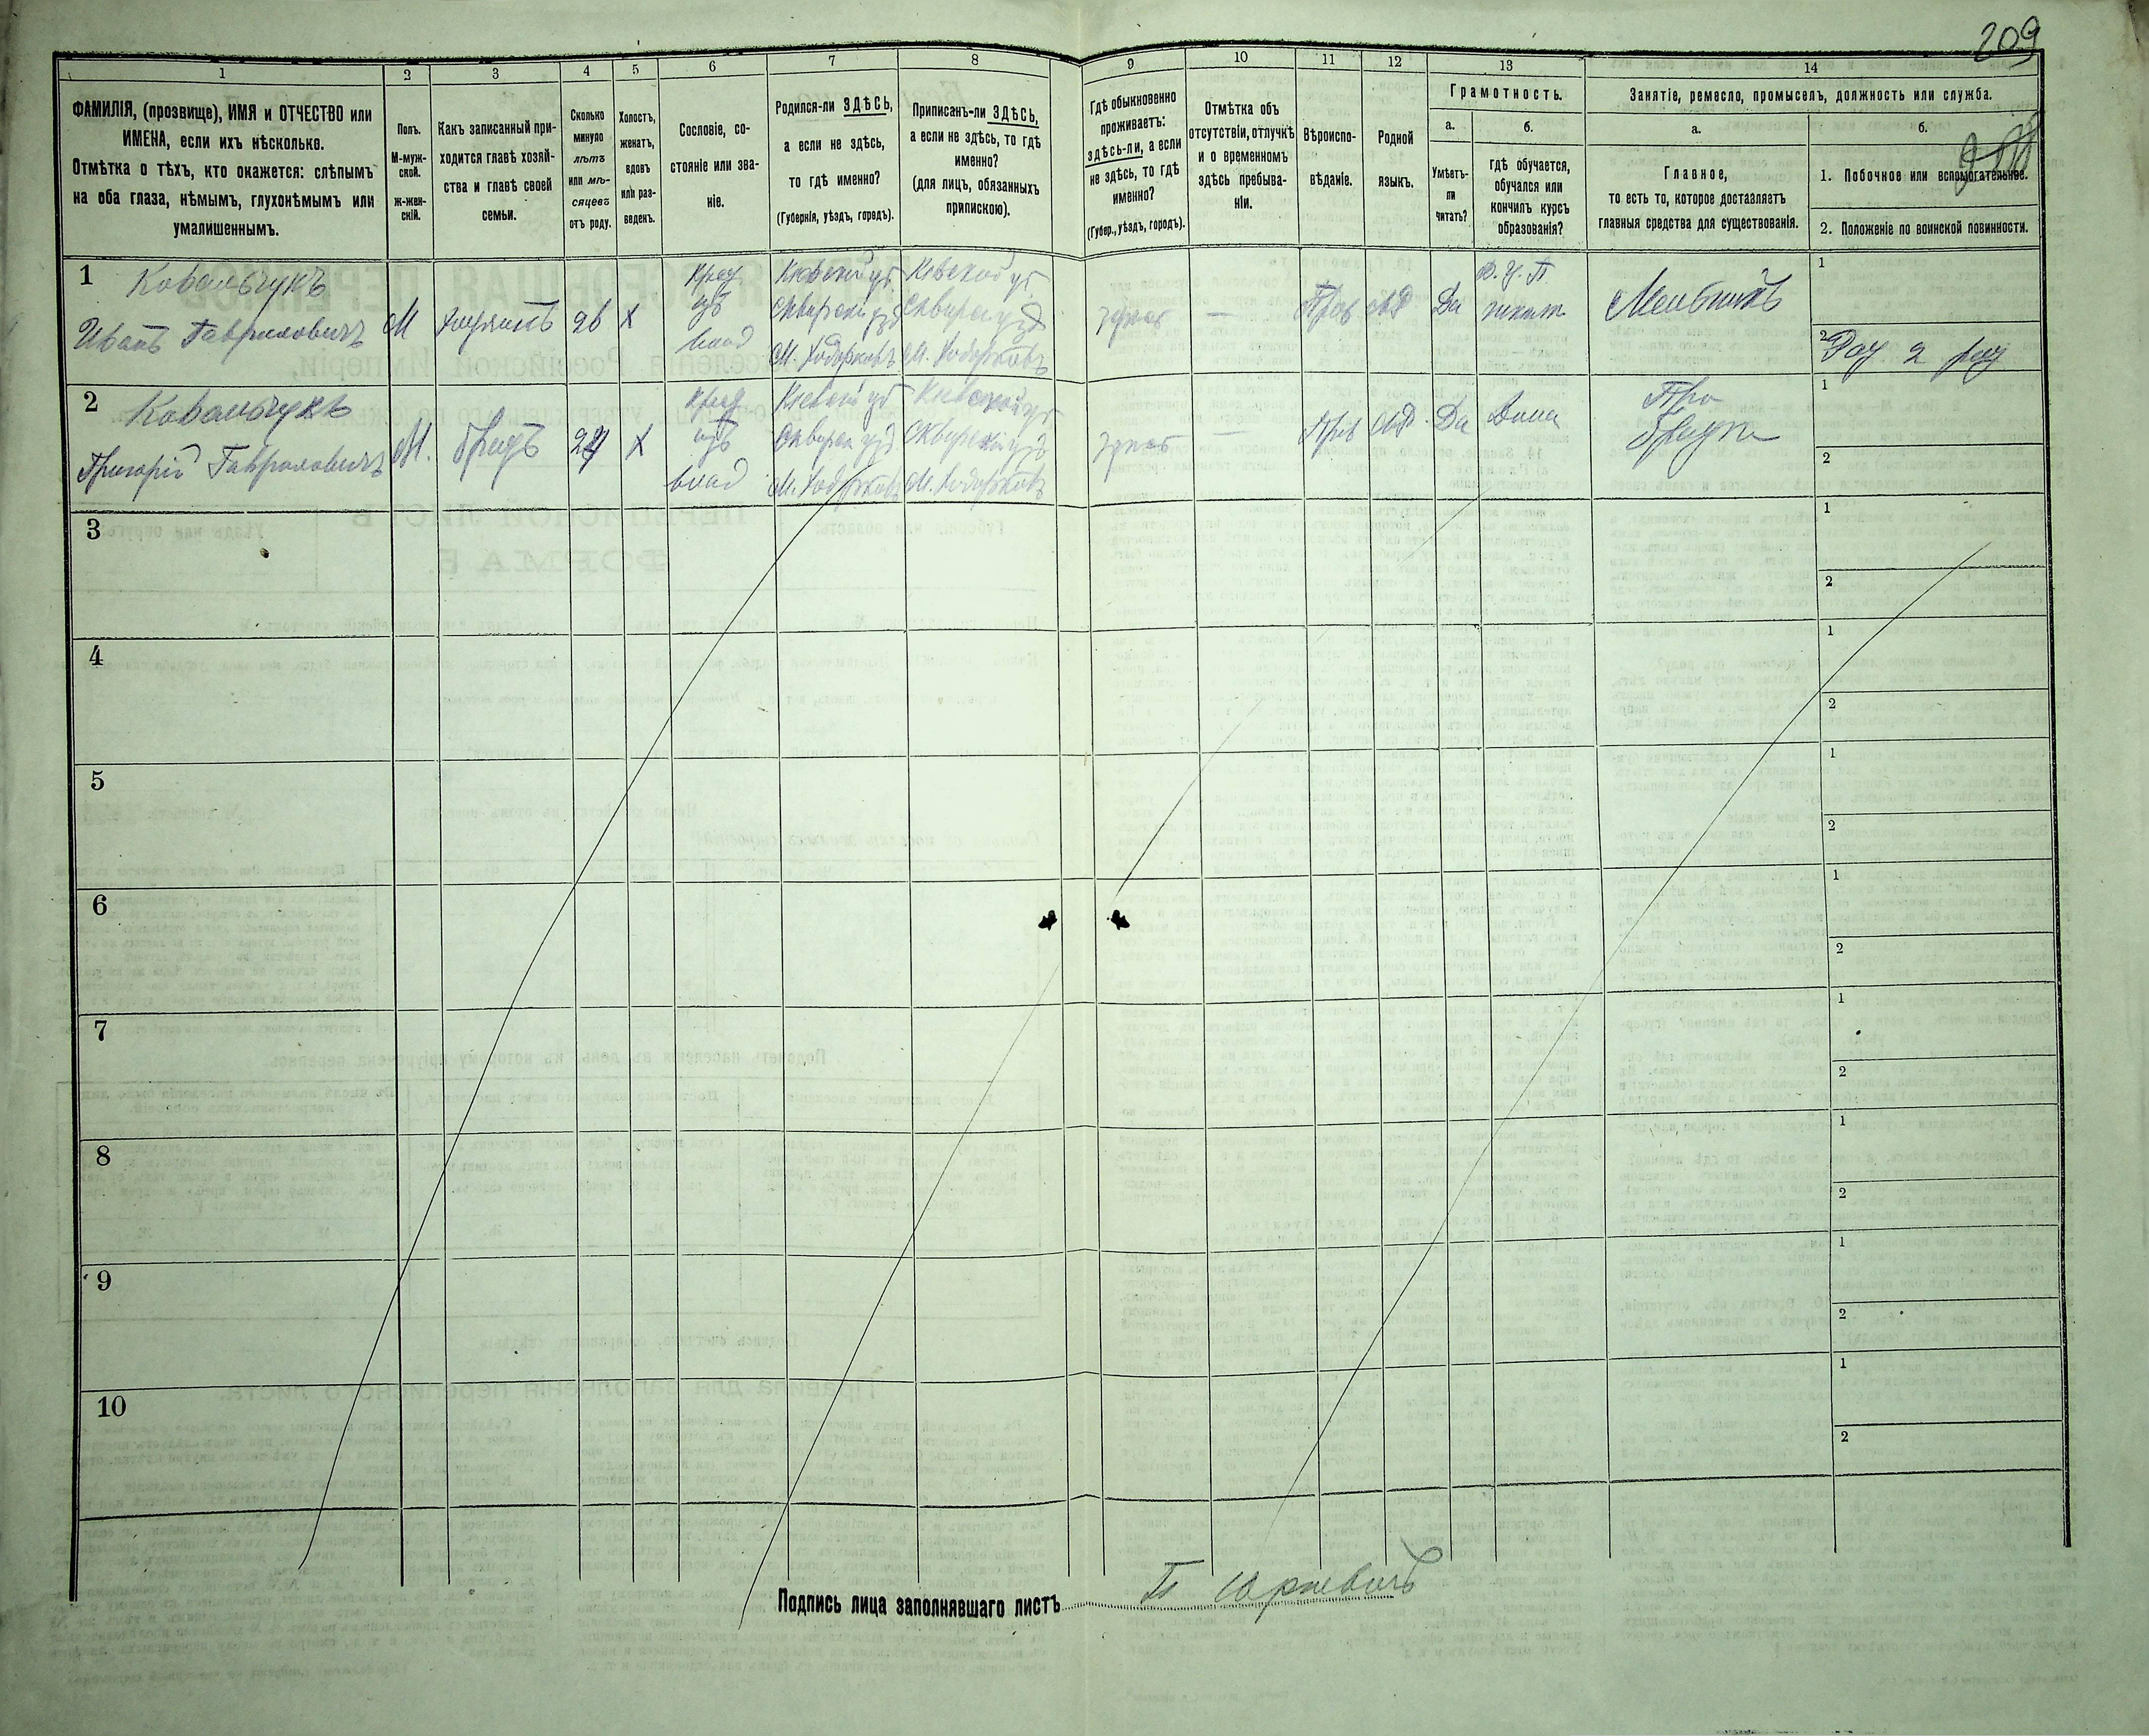 209
1
2
3
4
5
6
7
8
9
10
11
12
13
14
ФАМИЛІЯ, (прозвище), ИМЯ и ОТЧЕСТВО или
ИМЕНА, если ихъ нѣсколько.
Отмѣтка о тѣхъ, кто окажется: слѣпымъ
на оба глаза, нѣмымъ, глухонѣмымъ или
умалишеннымъ.
Полъ.
М-муж-
ской.
ж-жен-
скій.
Какъ записанный при-
ходится главѣ хозяй-
ства и главѣ своей
семьи.
Сколько
минуло
лѣтъ
или мѣ-
сяцевъ
отъ роду.
Холостъ,
женатъ,
вдовъ
или раз-
веденъ.
Сословіе, со-
стояніе или зва-
ніе.
Родился-ли ЗДѢСЬ,
а если не здѣсь,
то гдѣ именно?
(Губернія, уѣздъ, городъ).
Приписанъ-ли ЗДѢСЬ,
а если не здѣсь, то гдѣ
именно?
(для лицъ, обязанныхъ
припискою).
Гдѣ обыкновенно
проживаетъ:
здѣсь-ли, а если
не здѣсь, то гдѣ
именно?
(Губер., уѣздъ, городъ).
Отмѣтка объ
отсутствіи, отлучкѣ
и о временномъ
здѣсь пребыва-
ніи.
Вѣроиспо-
вѣданіе.
Родной
языкъ.
Грамотность.
а.
Умѣетъ-
ли
читать?
б.
гдѣ обучается,
обучался или
кончилъ курсъ
образованія?
Занятіе, ремесло, промыселъ, должность или служба.
а.
Главное,
то есть то, которое доставляетъ
главныя средства для существованія.
б.
1. Побочное или вспомогательное.
2. Положеніе по воинской повинности.
1
Ковальчукъ
Иванъ Гавриловичъ
М
хозяинъ
26
х
М. Ходорковъ
М. Ходорковъ
—
Прав
Да
Мельникъ
1
2
2
Ковальчукъ
Григорій Гавриловичъ
М.
братъ
24
х
М. Ходорковъ
М. Ходорковъ
—
Прав
Да
Дома
При
братѣ
1
2
3
1
2
4
1
2
5
1
2
6
1
2
7
1
2
8
1
2
9
1
2
10
1
2
Подпись лица заполнявшаго листъ